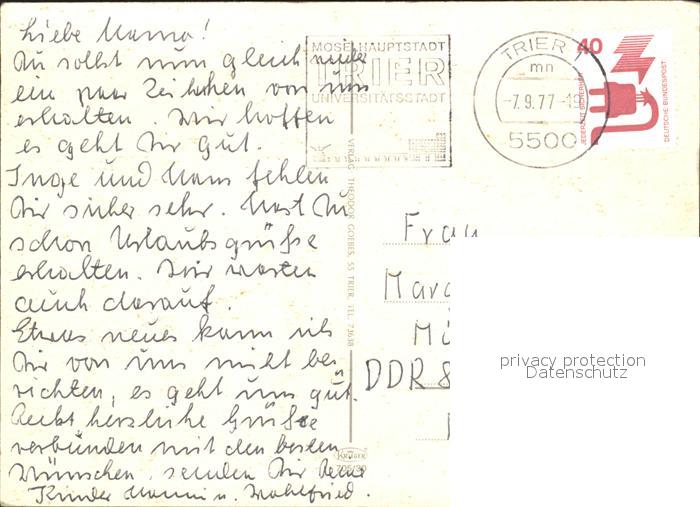 Liebe Mama!
Du sollst nun gleich wieder
ein paar Zeichen von uns
erhalten. Wir hoffen
es geht Dir gut.
Inge und Hans fehlen
Dir sicher sehr. Hast Du
schon Urlaubsgrüße
erhalten. Wir warten
auch darauf.
Etwas neues kann ich
Dir von uns nicht be-
richten, es geht uns gut.
Recht herzliche Grüße
verbunden mit den besten
Wünschen, senden Dir Deine
Kinder u. Wohlfried.
MOSELHAUPTSTADT
TRIER
UNIVERSITÄTSSTADT
TRIER 1
mn
-7.9.77-19
5500
40
JEDERZEIT SICHERHEIT
DEUTSCHE BUNDESPOST
VERLAG THEODOR GOEBES, 55 TRIER, TEL. 73638
Frau
DDR 8
KRÜGER
privacy protection
Datenschutz